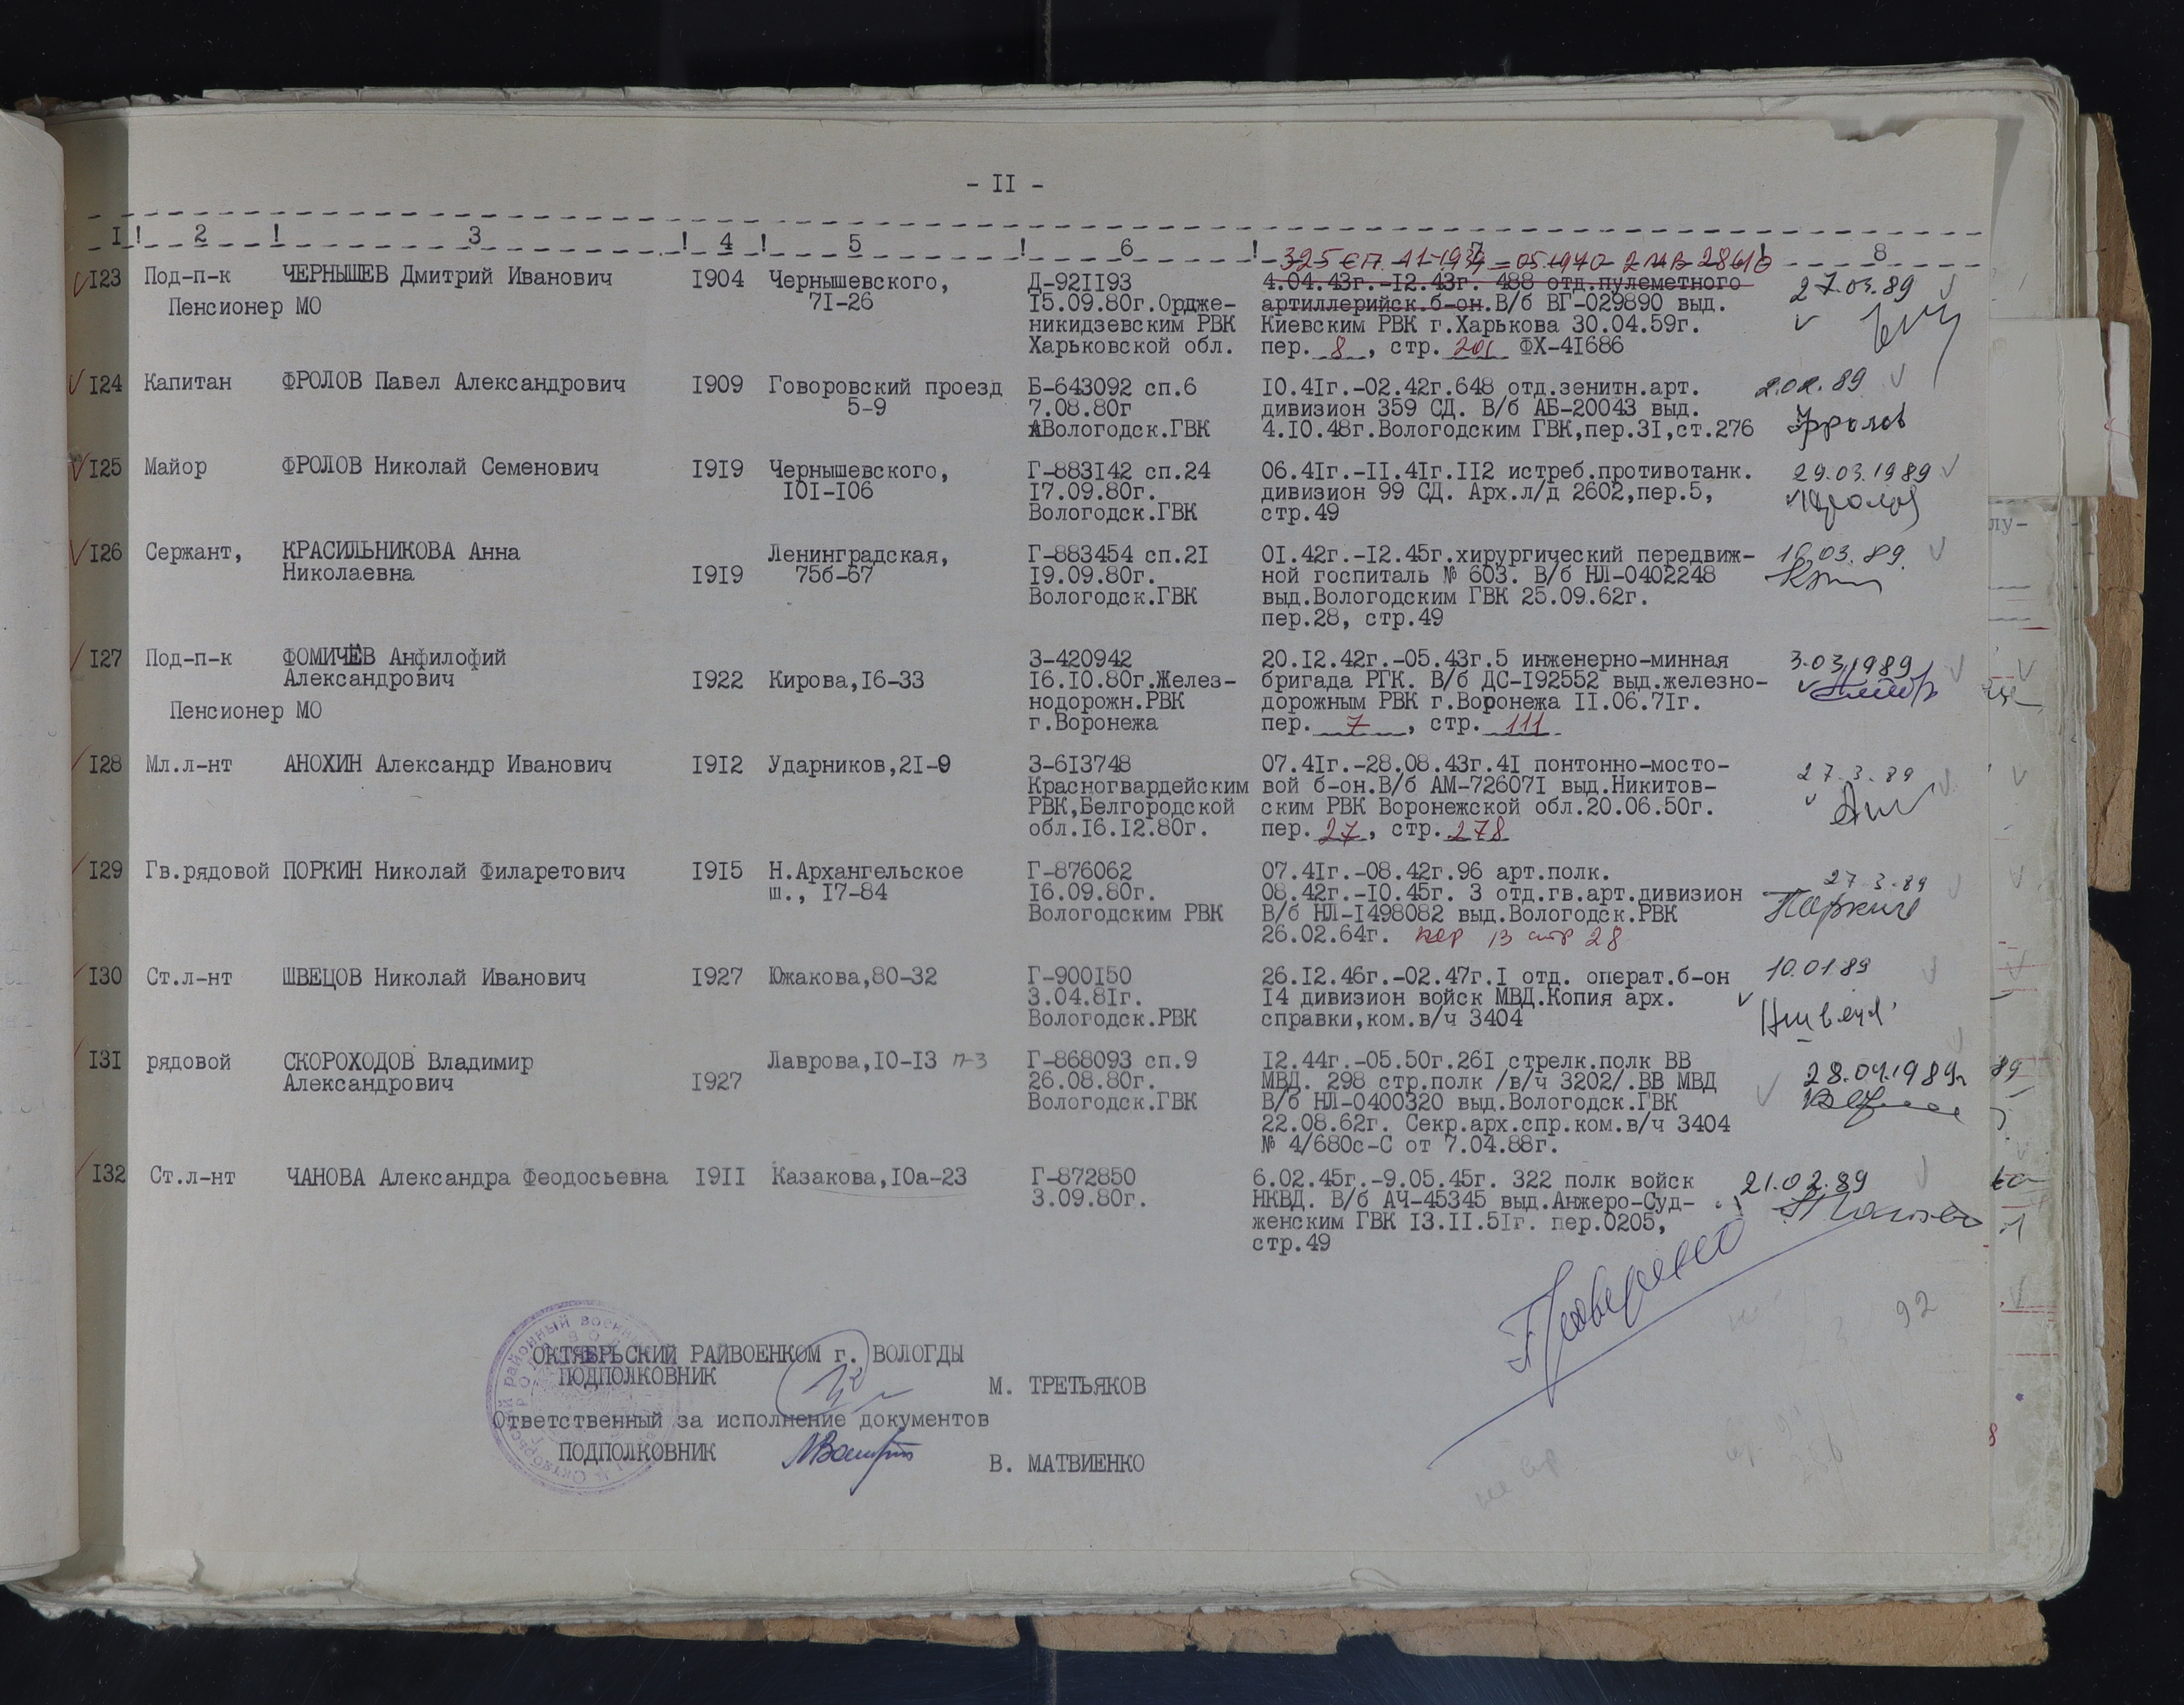 - II -
I ! 2 ! 3 ! 4 ! 5 ! 6 ! 7 ! 8
I23 Под-п-к ЧЕРНЫШЕВ Дмитрий Иванович I904 Чернышевского, Д-92II93 4.04.43г.-I2.43г. 488 отд.пулеметного 27.03.89
Пенсионер МО 7I-26 I5.09.80г.Ордже- артиллерийск.б-он.В/б ВГ-029890 выд.
никидзевским РВК Киевским РВК г.Харькова 30.04.59г.
Харьковской обл. пер. 8, стр. 201 ФХ-4I686
I24 Капитан ФРОЛОВ Павел Александрович I909 Говоровский проезд Б-643092 сп.6 I0.4Iг.-02.42г.648 отд.зенитн.арт. 2.02.89
5-9 7.08.80г дивизион 359 СД. В/б АБ-20043 выд.
Вологодск.ГВК 4.I0.48г.Вологодским ГВК,пер.3I,ст.276 Фролов
I25 Майор ФРОЛОВ Николай Семенович I9I9 Чернышевского, Г-883I42 сп.24 06.4Iг.-II.4Iг.II2 истреб.противотанк. 29.03.1989
I0I-I06 I7.09.80г. дивизион 99 СД. Арх.л/д 2602,пер.5,
Вологодск.ГВК стр.49
I26 Сержант, КРАСИЛЬНИКОВА Анна Ленинградская, Г-883454 сп.2I 0I.42г.-I2.45г.хирургический передвиж- 16.03.89.
Николаевна I9I9 75б-67 I9.09.80г. ной госпиталь № 603. В/б НЛ-0402248
Вологодск.ГВК выд.Вологодским ГВК 25.09.62г.
пер.28, стр.49
I27 Под-п-к ФОМИЧЁВ Анфилофий З-420942 20.I2.42г.-05.43г.5 инженерно-минная 3.03.1989
Александрович I922 Кирова,I6-33 I6.I0.80г.Желез- бригада РГК. В/б ДС-I92552 выд.железно-
Пенсионер МО нодорожн.РВК дорожным РВК г.Воронежа II.06.7Iг.
г.Воронежа пер. 7, стр. 111
I28 Мл.л-нт АНОХИН Александр Иванович I9I2 Ударников,2I-9 З-6I3748 07.4Iг.-28.08.43г.4I понтонно-мосто- 27.3.89
Красногвардейским вой б-он.В/б АМ-72607I выд.Никитов-
РВК,Белгородской ским РВК Воронежской обл.20.06.50г.
обл.I6.I2.80г. пер. 27, стр. 278
I29 Гв.рядовой ПОРКИН Николай Филаретович I9I5 Н.Архангельское Г-876062 07.4Iг.-08.42г.96 арт.полк. 27.3.89
ш., I7-84 I6.09.80г. 08.42г.-I0.45г. 3 отд.гв.арт.дивизион
Вологодским РВК В/б НЛ-I498082 выд.Вологодск.РВК
26.02.64г. пер 13 стр 28
I30 Ст.л-нт ШВЕЦОВ Николай Иванович I927 Южакова,80-32 Г-900I50 26.I2.46г.-02.47г.I отд. операт.б-он 10.01.89
3.04.8Iг. I4 дивизион войск МВД.Копия арх.
Вологодск.РВК справки,ком.в/ч 3404
I3I рядовой СКОРОХОДОВ Владимир Лаврова,I0-I3 п-3 Г-868093 сп.9 I2.44г.-05.50г.26I стрелк.полк ВВ
Александрович I927 26.08.80г. МВД. 298 стр.полк /в/ч 3202/.ВВ МВД 28.04.1989г
Вологодск.ГВК В/б НЛ-0400320 выд.Вологодск.ГВК
22.08.62г. Секр.арх.спр.ком.в/ч 3404
№ 4/680с-С от 7.04.88г.
I32 Ст.л-нт ЧАНОВА Александра Феодосьевна I9II Казакова,I0а-23 Г-872850 6.02.45г.-9.05.45г. 322 полк войск 21.02.89
3.09.80г. НКВД. В/б АЧ-45345 выд.Анжеро-Суд-
женским ГВК I3.II.5Iг. пер.0205,
стр.49
Проверено
92
ОКТЯБРЬСКИЙ РАЙВОЕНКОМ г. ВОЛОГДЫ
ПОДПОЛКОВНИК М. ТРЕТЬЯКОВ
Ответственный за исполнение документов
ПОДПОЛКОВНИК В. МАТВИЕНКО